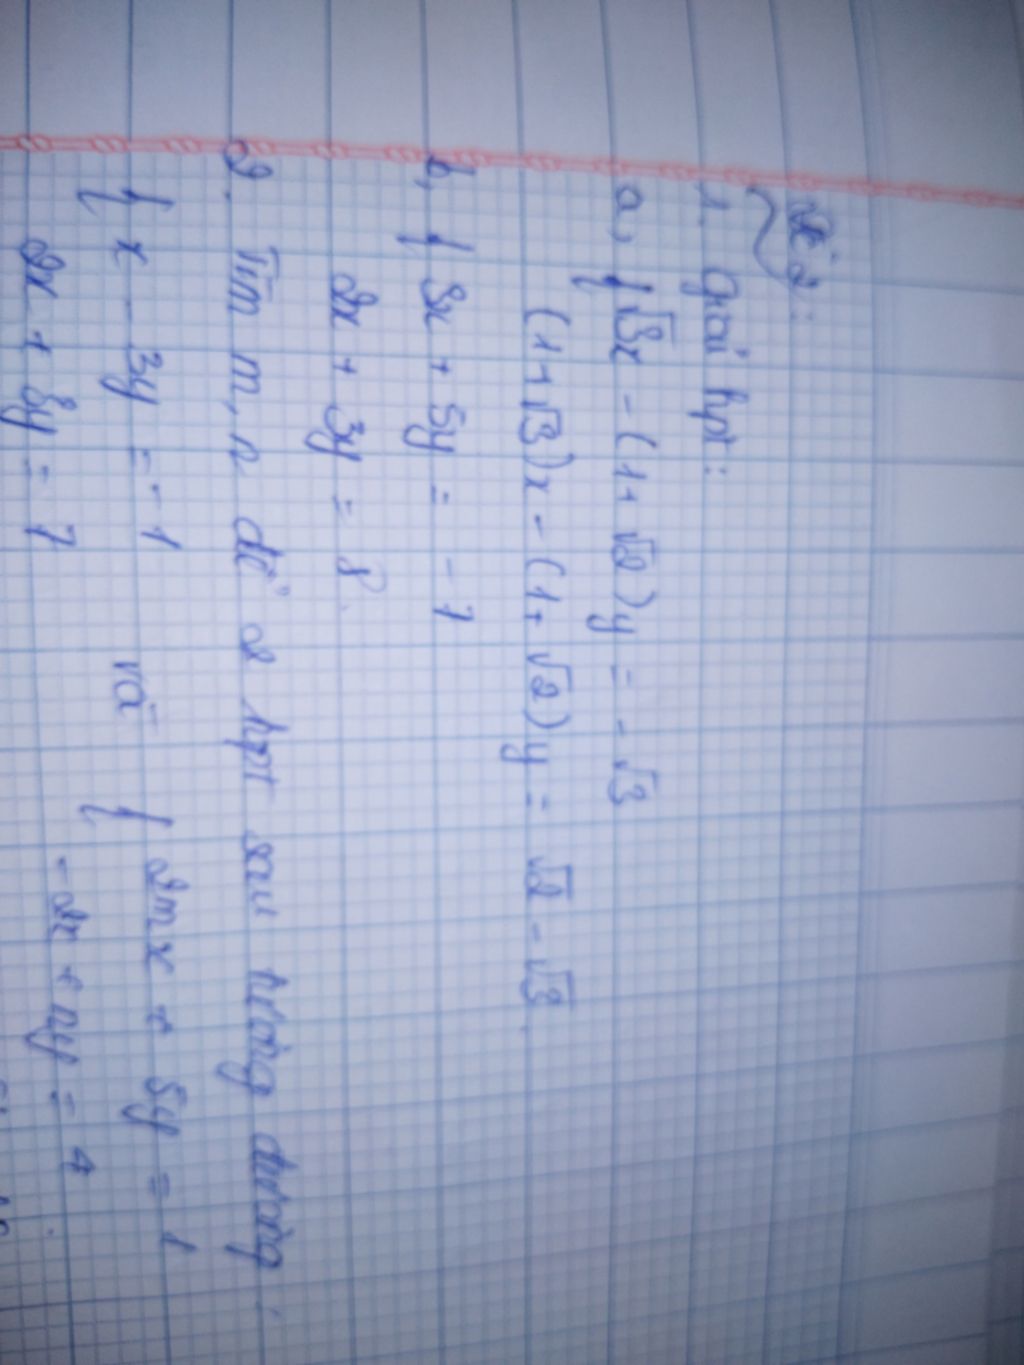 Đề 2:
1. Giải hpt:
a, { √3x - (1+√2)y = -√3
(1+√3)x - (1+√2)y = √2 - √3.
b, { 3x + 5y = -7
2x + 3y = 8
2. Tìm m, n để 2 hpt sau tương đương:
{ x - 3y = -1 và { 2mx + 5y = 1
2x + 8y = 7 -2x + ny = 4